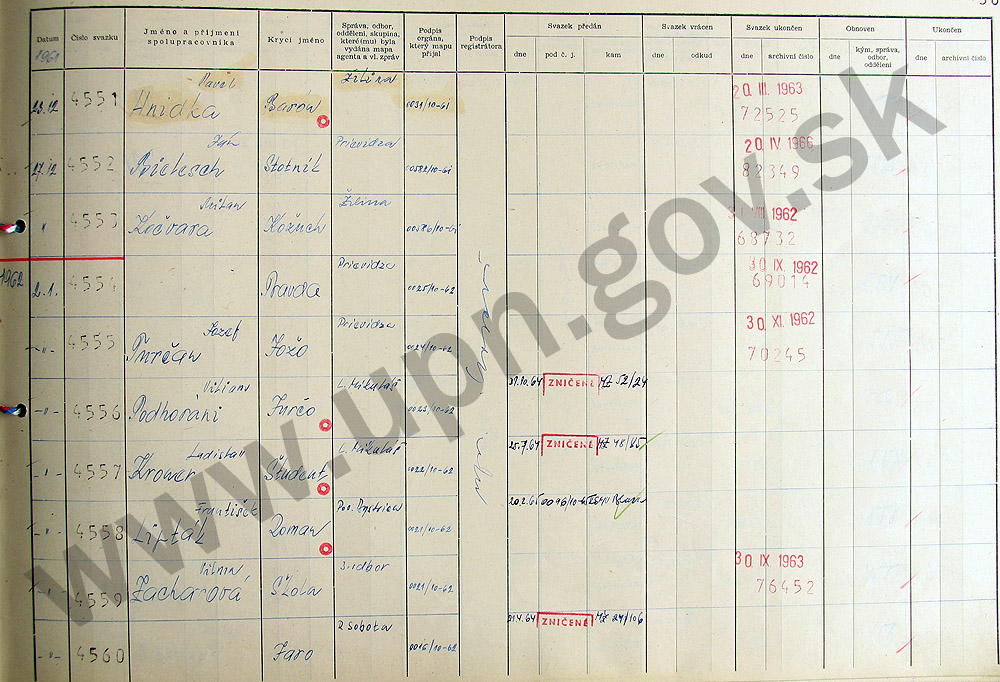 Datum Číslo svazku Jméno a příjmení spolupracovníka Krycí jméno Správa, odbor, oddělení, skupina, které(mu) byla vydána mapa agenta a vl. zpráv Podpis orgána, který mapu přijal Podpis registrátora Svazek předán Svazek vrácen Svazek ukončen Obnoven Ukončen
dne pod č. j. kam dne odkud dne archivní číslo dne kým, správa, odbor, oddělení dne archivní číslo
1961
23.12 4551 Pavel Hnidka Barón Žilina 0031/10-61 20. III. 1963 72525
27.12 4552 Ján Stotník Prievidza 00582/10-61 20. IV. 1966 82349
" 4553 Milan Kočvara Kožuch Žilina 00576/10-61 1962 68732
1962
2.1. 4554 Pravda Prievidza 0025/10-62 30. IX. 1962 69014
-"- 4555 Jozef Turčan Jožo Prievidza 0024/10-62 30. XI. 1962 70245
-"- 4556 Viliam Podhoráni Jurčo L. Mikuláš 0023/10-62 31.10.64 ZNIČENÉ MZ 52/24
-"- 4557 Ladislav Kromer Študent L. Mikuláš 0022/10-62 25.7.64 ZNIČENÉ MZ 48/65
-"- 4558 František Lipták Roman Pov. Bystrica 0021/10-62 20.2.65
-"- 4559 Vilma Zacharová Škola 3. odbor 0021/10-62 30. IX. 1963 76452
-"- 4560 Jaro R Sobota 0016/10-62 ZNIČENÉ MZ 24/106
www.upn.gov.sk